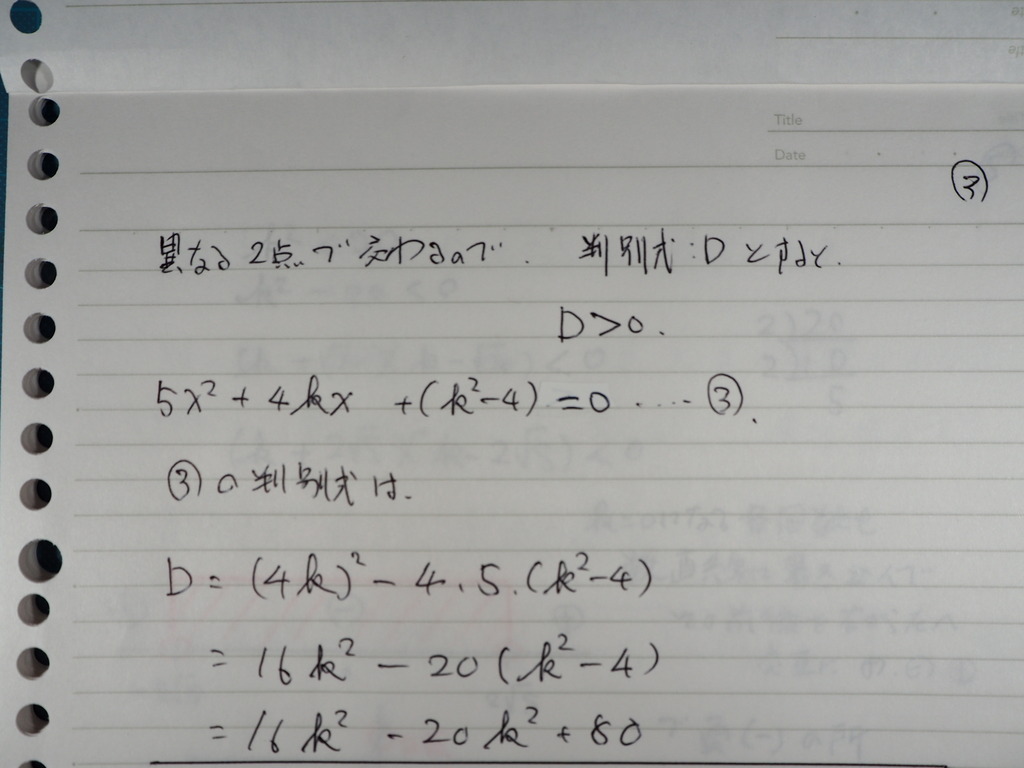 Title
Date
③
異なる2点で交わるので. 判別式:Dとすると.
D>0.
5x²+4kx +(k²-4)=0 ‥‥ ③.
③の判別式は.
D=(4k)²-4.5.(k²-4)
=16k²-20(k²-4)
=16k²-20k²+80